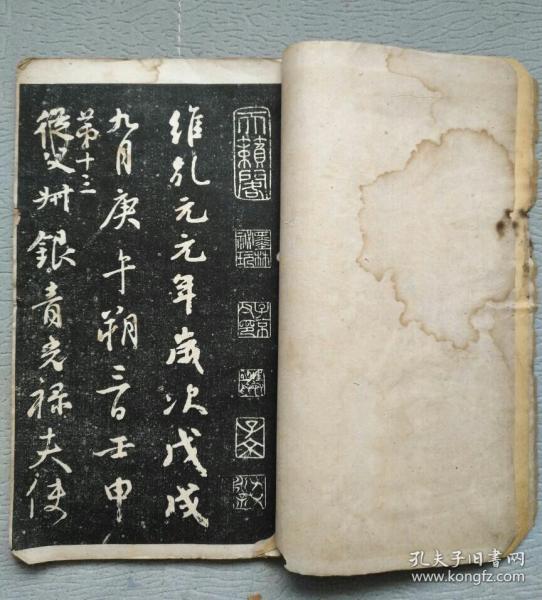 天籟閣
墨林
秘玩
維乾元元年歲次戊戌
九月庚午朔三日壬申
第十三
從父叔銀青光祿夫使
孔夫子旧书网
www.kongfz.com